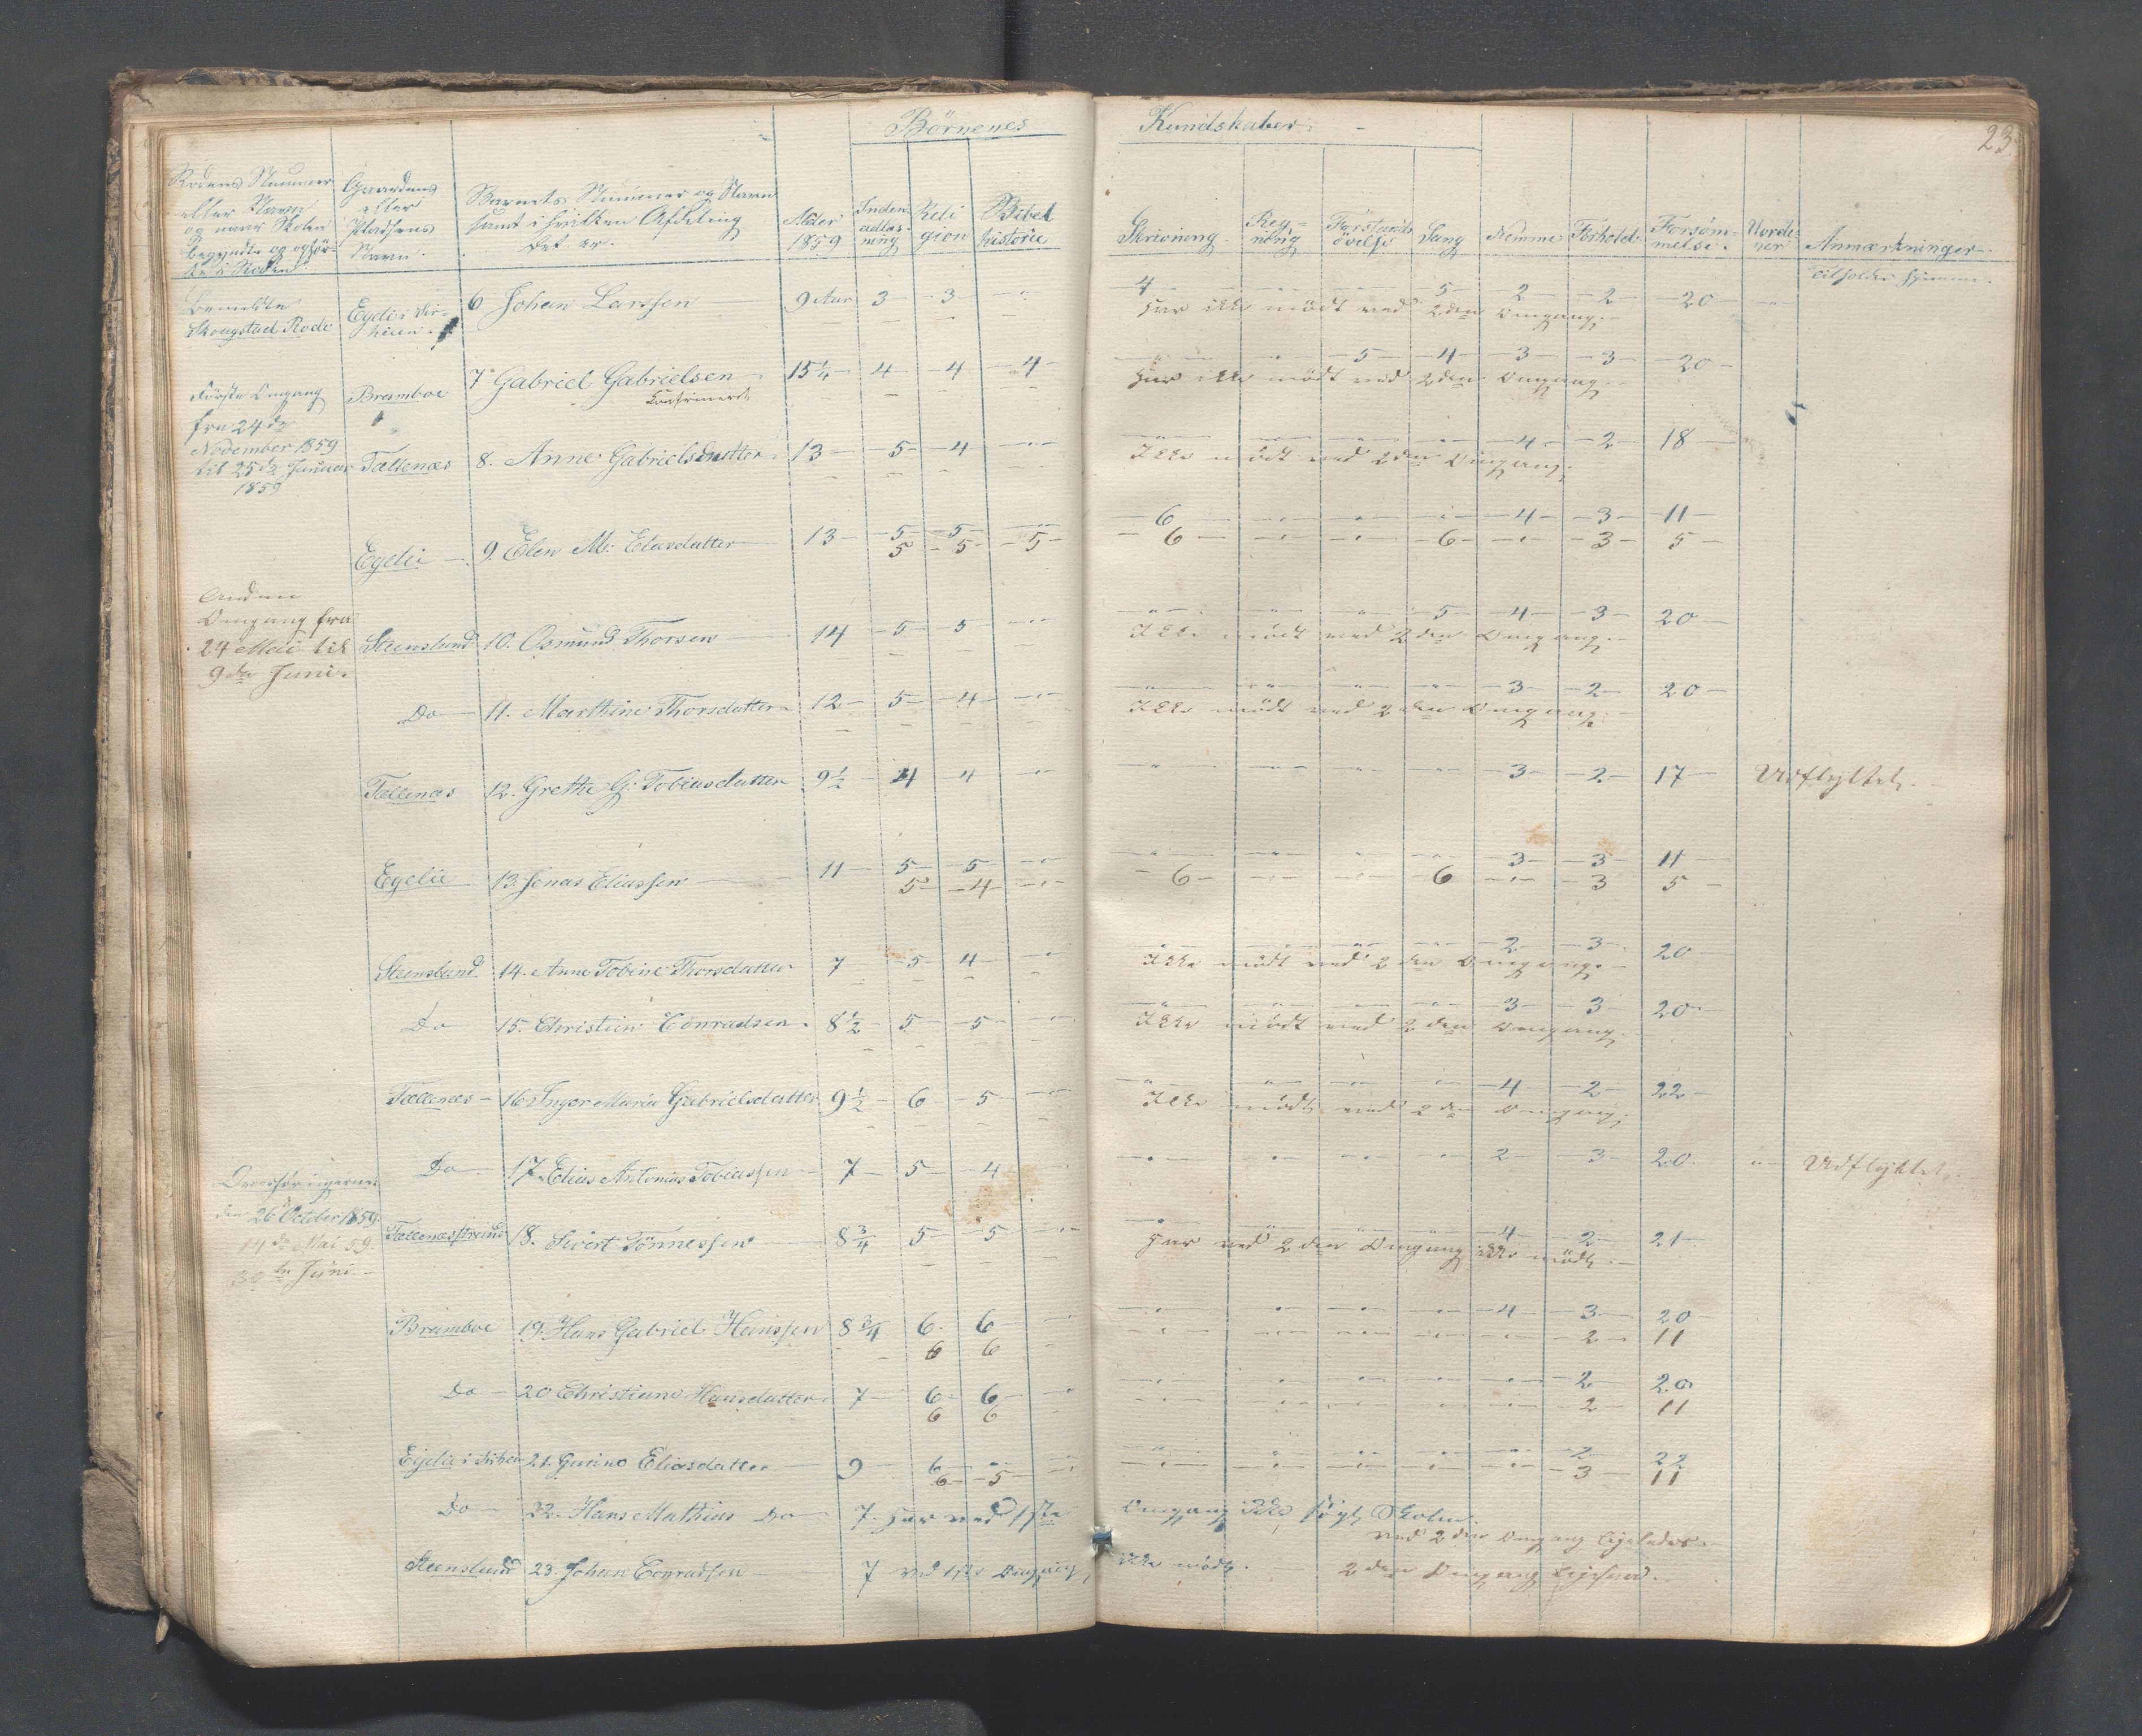 Börnenes Kundskaber.
23
Rodens Nummer eller Navn og naar Skolen begyndte og ophör-te i Roden
Gaardens eller Pladsens Navn.
Barnets Nummer og Navn samt i hvilken Afdeling det er.
Alder 1859
Inden-adlæs-ning
Reli gion
Bibel historie
Skrivning
Reg-ning
Forstands övelse
Sang
Nemme
Forhold
Forsöm-melse.
Anmærkninger
Skougstad Rode
6 Johan Larssen 9 Aar 3 3 " 4 5 2 2 20
Har ikke mödt ved 2den Omgang.
Förste Omgang fra 24de November 1859 til 25de Januar 1859
Bramboe 7 Gabriel Gabrielsen 15¼ 4 4 4 " " 5 4 3 3 20
Confirmeret
Har ikke mödt ved 2den Omgang.
Tællenæs 8. Anne Gabrielsdatter 13 5 4 " " " " " 4 2 18
Ikke mödt ved 2den Omgang.
Egelie 9. Elen M. Eliasdatter 13 5 5 " 6 " " " 4 3 11
5 5 5 6 " " 6 " 3 5
Anden Omgang fra 24 Mai til 9de Juni.
Steenslund 10. Osmund Thorsen 14 5 5 " " " " 5 4 3 20
Ikke mödt ved 2den Omgang.
Do 11. Marthine Thorsdatter 12 5 4 " " " " " 3 2 20
Ikke mödt ved 2den Omgang.
Tællenæs 12. Grethe G. Tobiasdatter 9½ 4 4 " " " " " 3 2 17 Udflyttet.
Egelie 13. Jonas Eliassen 11 5 5 " " " " " 3 3 11
5 4 " 6 " " 6 " 3 5
Steenslund 14. Anne Tobine Thorsdatter 7 5 4 " " " " " 2 3 20
Ikke mödt ved 2den Omgang.
Do 15. Christian Conradsen 8½ 5 5 " " " " " 3 3 20
Ikke mödt ved 2den Omgang.
Tællenæs 16. Inger Maria Gabrielsdatter 9½ 6 5 " " " " " 4 2 22
Ikke mödt ved 2den Omgang.
Do 17. Elias Antonius Tobiassen 7 5 4 " " " " 2 3 20 " Udflyttet.
den 26 October 1859.
14de Mai 59.
30te Juni.
18. Sivert Tönnessen 8¾ 5 5 " " " " " 4 2 21
Har ved 2den Omgang ikke mödt.
Bramboe 19. Hans Gabriel Hanssen 8¾ 6 6 " " " " " 4 3 20
6 6 " " " " " " 2 11
Do 20 Christiane Hansdatter 7 6 6 " " " " " " 2 20
6 6 " " " " " 2 11
21. Gurine Eliasdatter 9 6 " " " " " " " 2 22
6 5 " " " " " " 3 11
Do 22. Hans Mathias Do 7. Har ved 1ste Omgang ikke sögt Skolen.
ved 2den Omgang ligeledes
Steenslund 23. Johan Conradsen 7 ved 1ste Omgang ikke mödt. 2den Omgang ligesaa.